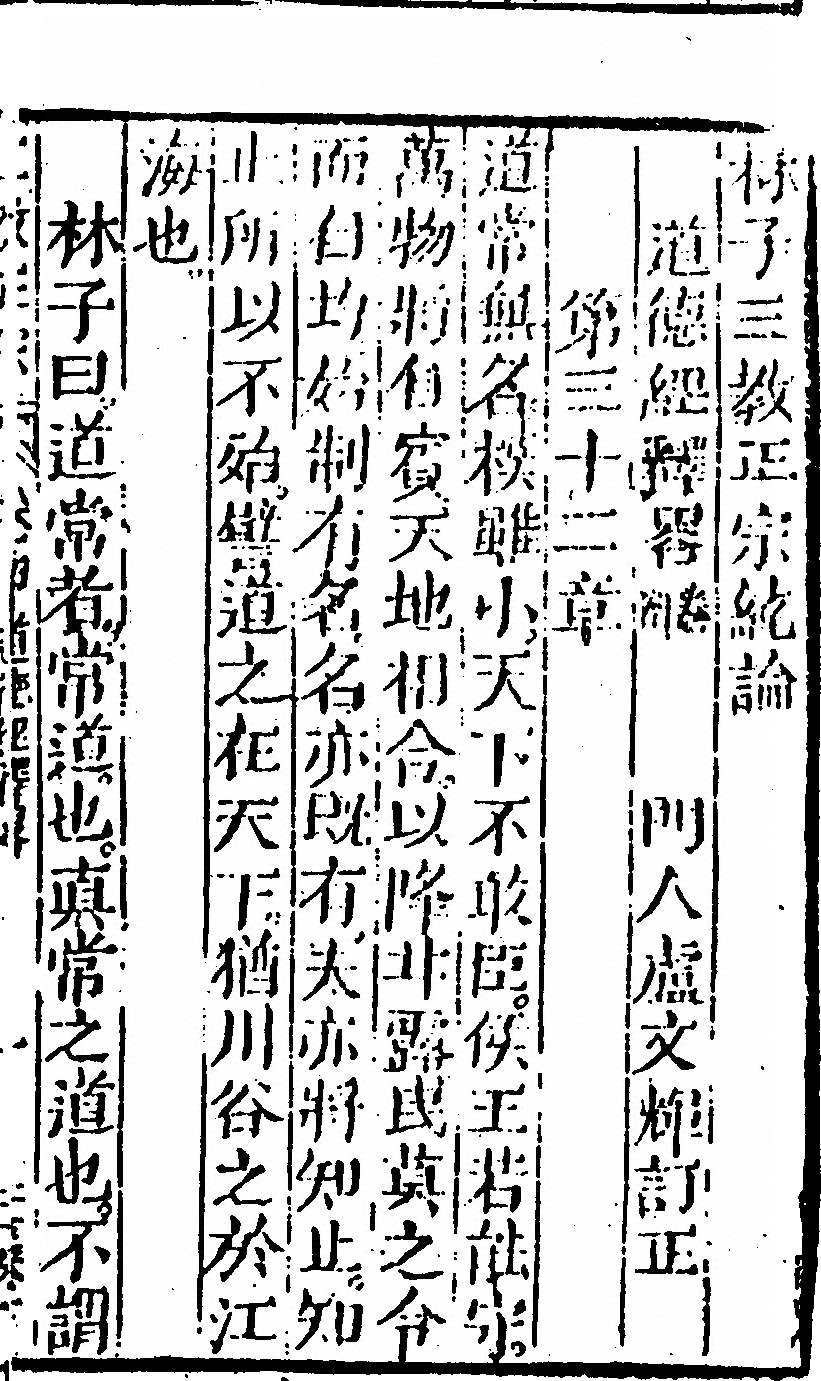 林子三教正宗統論
道德經釋畧　門人盧文輝訂正
第三十二章
道常無名樸雖小、天下不敢臣。侯王若能守。
萬物將自賓天地相合。以降甘露民莫之令
而自均始制有名、名亦既有、夫亦將知止。知
止所以不殆。譬道之在天下。猶川谷之於江
海也。
林子曰。道常者。常道也。真常之道也。不謂